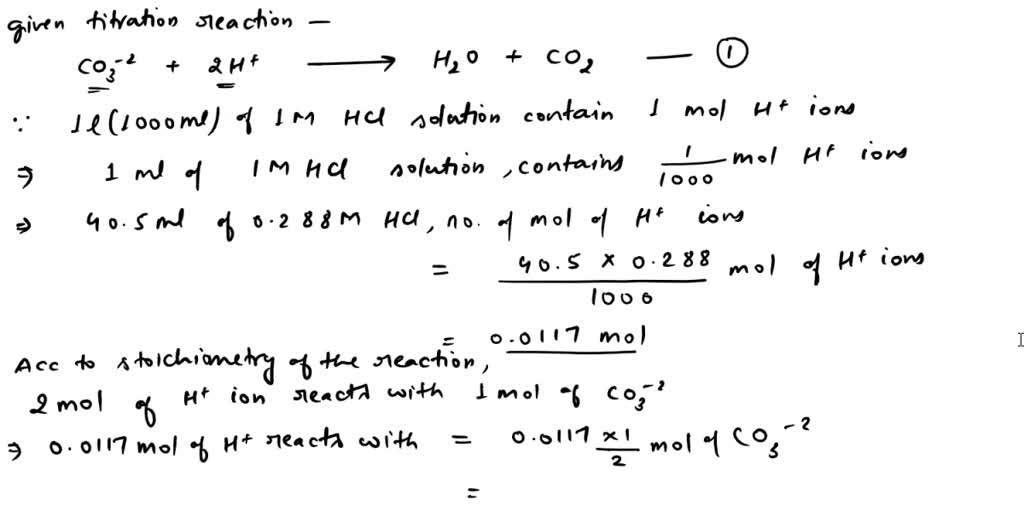 given titration reaction —
CO₃⁻² + 2H⁺ ⟶ H₂O + CO₂ — ①
∵ 1l (1000ml) of 1M HCl solution contain 1 mol H⁺ ions
⇒ 1 ml of 1M HCl solution, contains 1/1000 mol H⁺ ions
⇒ 40.5ml of 0.288M HCl, no. of mol of H⁺ ions
= 40.5 × 0.288 / 1000 mol of H⁺ ions
= 0.0117 mol
Acc to stoichiometry of the reaction,
2 mol of H⁺ ion reacts with 1 mol of CO₃⁻²
⇒ 0.0117 mol of H⁺ reacts with = 0.0117 × 1/2 mol of CO₃⁻²
=